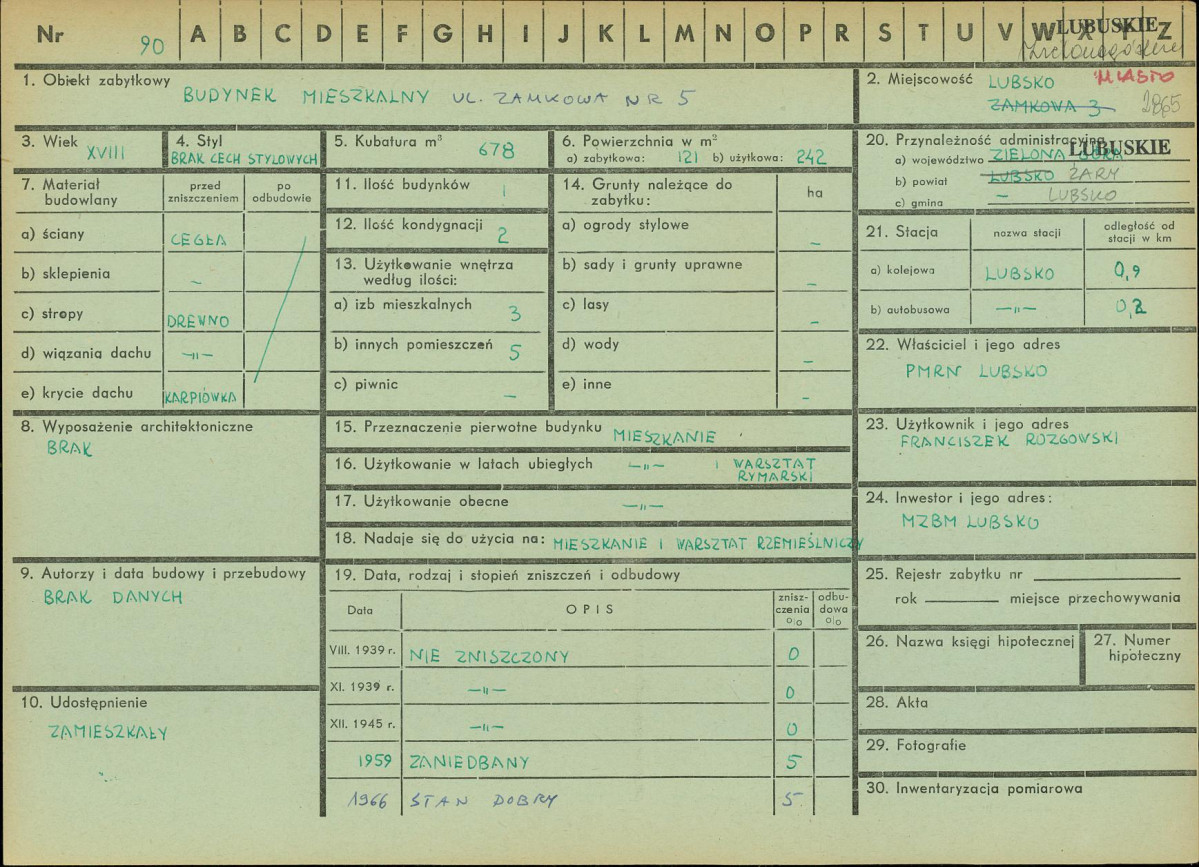 Nr 90 A B C D E F G H I J K L M N O P R S T U V W X Y Z LUBUSKIE
Zielonogórskie
1. Obiekt zabytkowy
BUDYNEK MIESZKALNY UL. ZAMKOWA NR 5
2. Miejscowość LUBSKO MIASTO
ZAMKOWA 3 2865
3. Wiek XVIII
4. Styl
BRAK CECH STYLOWYCH
5. Kubatura m³ 678
6. Powierzchnia w m²
a) zabytkowa: 121 b) użytkowa: 242
20. Przynależność administracyjna
LUBUSKIE
a) województwo ZIELONA GÓRA
b) powiat LUBSKO ŻARY
c) gmina – LUBSKO
7. Materiał budowlany
przed zniszczeniem
po odbudowie
a) ściany CEGŁA
b) sklepienia –
c) stropy DREWNO
d) wiązania dachu –"–
e) krycie dachu KARPIÓWKA
11. Ilość budynków 1
12. Ilość kondygnacji 2
13. Użytkowanie wnętrza
według ilości:
a) izb mieszkalnych 3
b) innych pomieszczeń 5
c) piwnic –
14. Grunty należące do
zabytku:
ha
a) ogrody stylowe –
b) sady i grunty uprawne –
c) lasy –
d) wody –
e) inne –
21. Stacja
nazwa stacji
odległość od
stacji w km
a) kolejowa LUBSKO 0,9
b) autobusowa –"– 0,2
22. Właściciel i jego adres
PMRN LUBSKO
8. Wyposażenie architektoniczne
BRAK
15. Przeznaczenie pierwotne budynku MIESZKANIE
16. Użytkowanie w latach ubiegłych –"– I WARSZTAT
RYMARSKI
17. Użytkowanie obecne –"–
18. Nadaje się do użycia na: MIESZKANIE I WARSZTAT RZEMIEŚLNICZY
23. Użytkownik i jego adres
FRANCISZEK ROZGOWSKI
24. Inwestor i jego adres:
MZBM LUBSKO
9. Autorzy i data budowy i przebudowy
BRAK DANYCH
19. Data, rodzaj i stopień zniszczeń i odbudowy
Data OPIS
znisz-
czenia
o|o
odbu-
dowa
o|o
VIII. 1939 r. NIE ZNISZCZONY 0
XI. 1939 r. –"– 0
XII. 1945 r. –"– 0
1959 ZANIEDBANY 5
1966 STAN DOBRY 5
25. Rejestr zabytku nr
rok miejsce przechowywania
26. Nazwa księgi hipotecznej
27. Numer
hipoteczny
10. Udostępnienie
ZAMIESZKAŁY
28. Akta
29. Fotografie
30. Inwentaryzacja pomiarowa